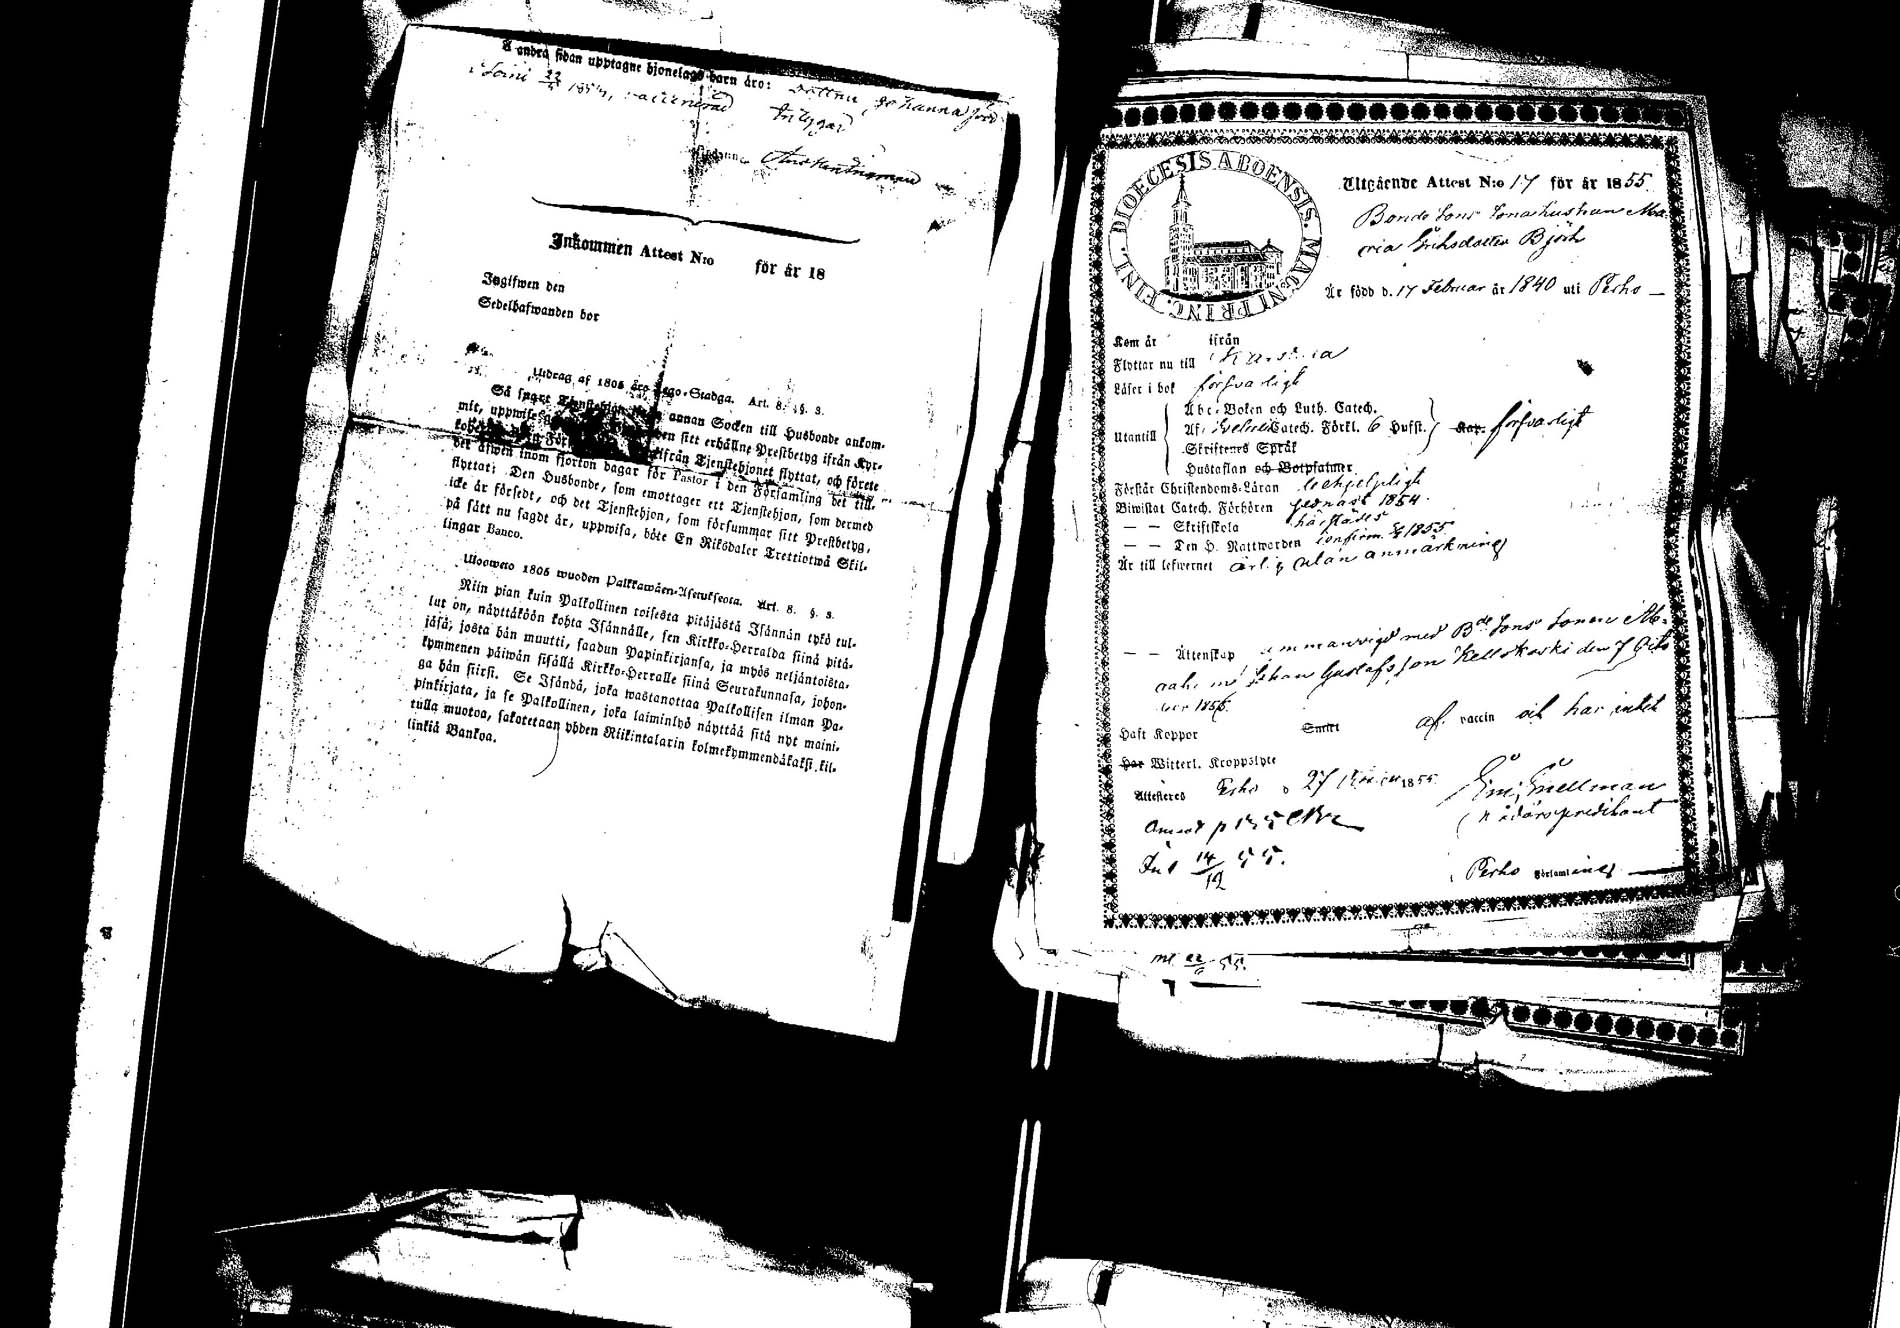 Å andra sidan upptagne hjonelags barn äro: dottren Johanna född
i Soini 22/5 1854, vaccinerad
intygar
Inkommen Attest N:o för år 18
Ingifwen den
Sedelhafwanden bor
Utdrag af 1805 års Lego-Stadga. Art. 8. §. 3.
Så snart Tjenstehjon från annan Socken till Husbonde ankom-
mit, uppwise sitt erhållne Prestbetyg ifrån Kyr-
ifrån Tjenstehjonet flyttat, och förete
det äfwen inom fjorton dagar för Pastor i den Församling det till-
flyttat; Den Husbonde, som emottager ett Tjenstehjon, som dermed
icke är försedt, och det Tjenstehjon, som försummar sitt Prestbetyg,
på sätt nu sagdt är, uppwisa, böte En Riksdaler Trettiotwå Skil-
lingar Banco.
Ulosweto 1805 wuoden Palkkawäen-Asetuksesta. Art. 8. §. 3.
Niin pian kuin Palkollinen toisesta pitäjästä Isännän tykö tul-
lut on, näyttäköön kohta Isännälle, sen Kirkko-Herralda siinä pitä-
jäsä, josta hän muutti, saadun Papinkirjansa, ja myös neljäntoista-
kymmenen päiwän sisällä Kirkko-Herralle siinä Seurakunnasa, johon-
ga hän siirsi. Se Isändä, joka wastanottaa Palkollisen ilman Pa-
pinkirjata, ja se Palkollinen, joka laiminlyö näyttää sitä nyt maini-
tulla muotoa, sakotetaan yhden Riikintalarin kolmekymmendäkaksi kil-
linkiä Bankoa.
DIOECESIS ABOENSIS. MAGNI PRINC. FINL.
Utgående Attest N:o 17 för år 1855
Bonde Sons Sonahustrun Ma-
ria Erichsdotter Björk
Är född d. 17 Februar år 1840 uti Perho —
Kom år ifrån
Flyttar nu till
Läser i bok försvarligt
Utantill
Abc-Boken och Luth. Catech.
Af Catech. Förkl. 6 Hufst. Kap. försvarligt
Skriftenes Språk
Hustaflan och Botpsalmer
Förstår Christendoms-Läran
Biwistat Catech. Förhören senast 1854.
— — Skriftskola härstädes
— — Den H. Nattwarden confirm. 1855
Är till lefwernet ärlig utan anmärkning
— — Äktenskap sammanvigd med Bde Sons Sonen
Johan Gustafsson Kellokoski den 7 Octo
ber 1855.
Haft Koppor Smitt af vaccin och har intet
Har Witterl. Kroppslyte
Attesteras Perho d 27 1855.
Snellman
Perho Församling
Inl 14/12 55.